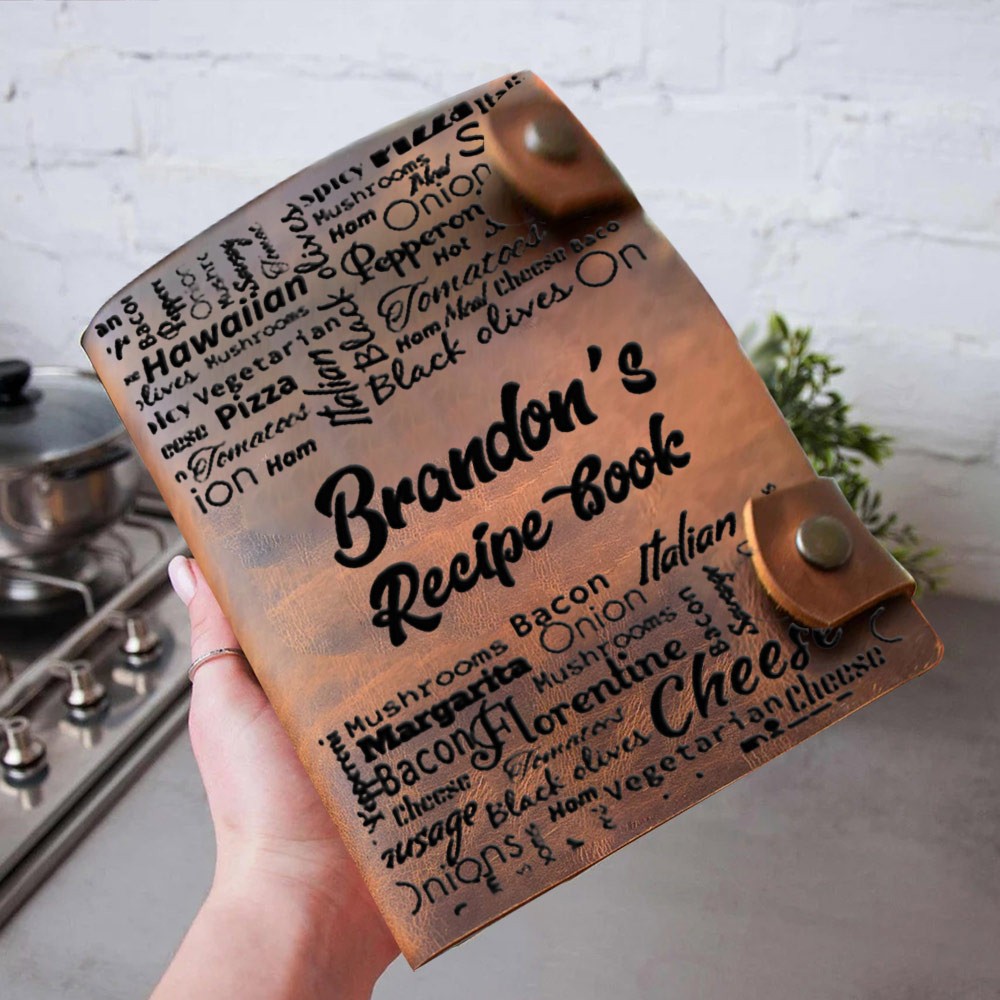 Itali
PIZZa
spicy
Mushrooms
Meat
Ham Onion
olives
Pepperon
Hot
Tomatoes
Baco
Ham Meat Cheese
Black olives On
Italian
Black
Bacon
Hawaiian
Mushrooms
lives Vegetarian
picy Pizza
eese Tomatoes
n
ion Ham
Brandon's
Recipe Book
Italian
Mushrooms Bacon
Margarita Onion
Mushrooms
Bacon
Bacon Florentine Cheese
Cheese Tomatoes
usage Black olives
Ham Vegetarian Cheese
Onions